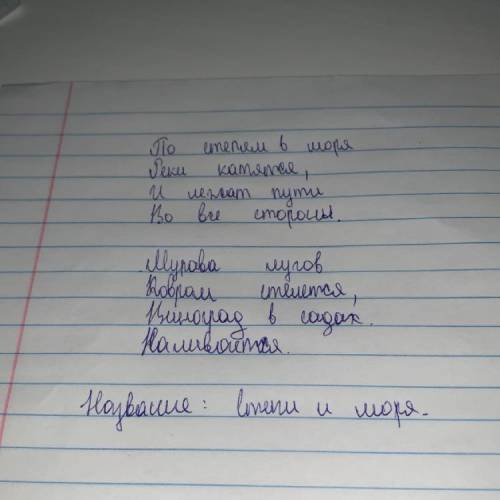 По степям в моря
Реки катятся,
И лежат пути
Во все стороны.
Мурава лугов
Ковром стелется,
Виноград в садах.
Наливается.
Название: степи и моря.